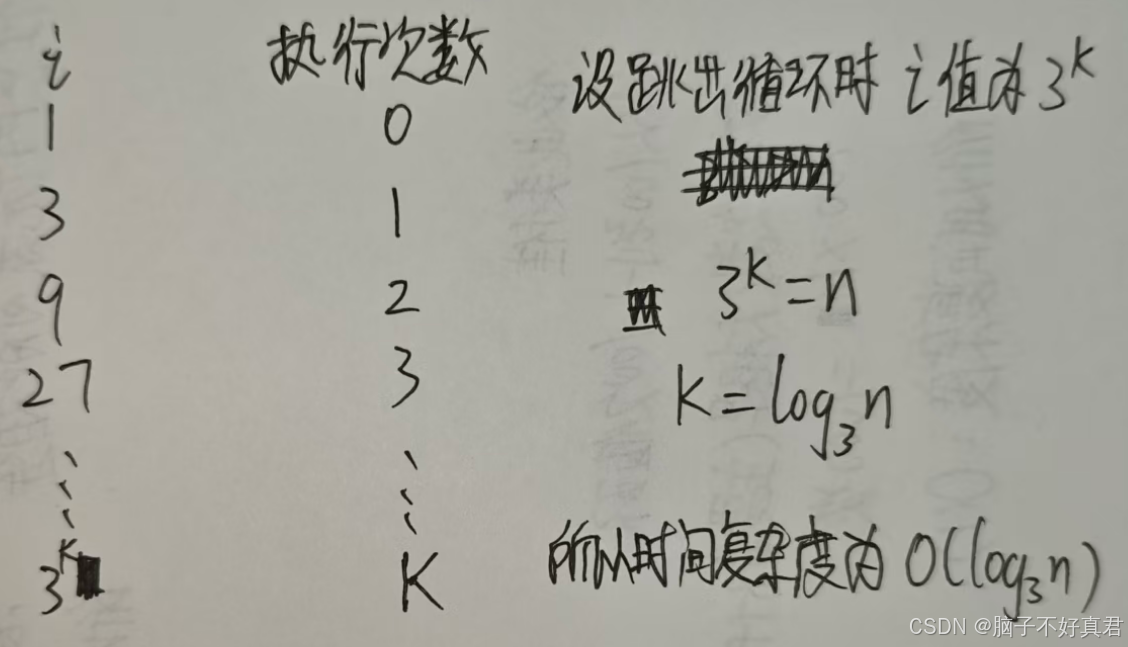 i 执行次数
1 0
3 1
9 2
27 3
⋮ ⋮
3^K K
设跳出循环时 i值为 3^K
3^K=n
K=log₃n
所以时间复杂度为 O(log₃n)
CSDN @脑子不好真君